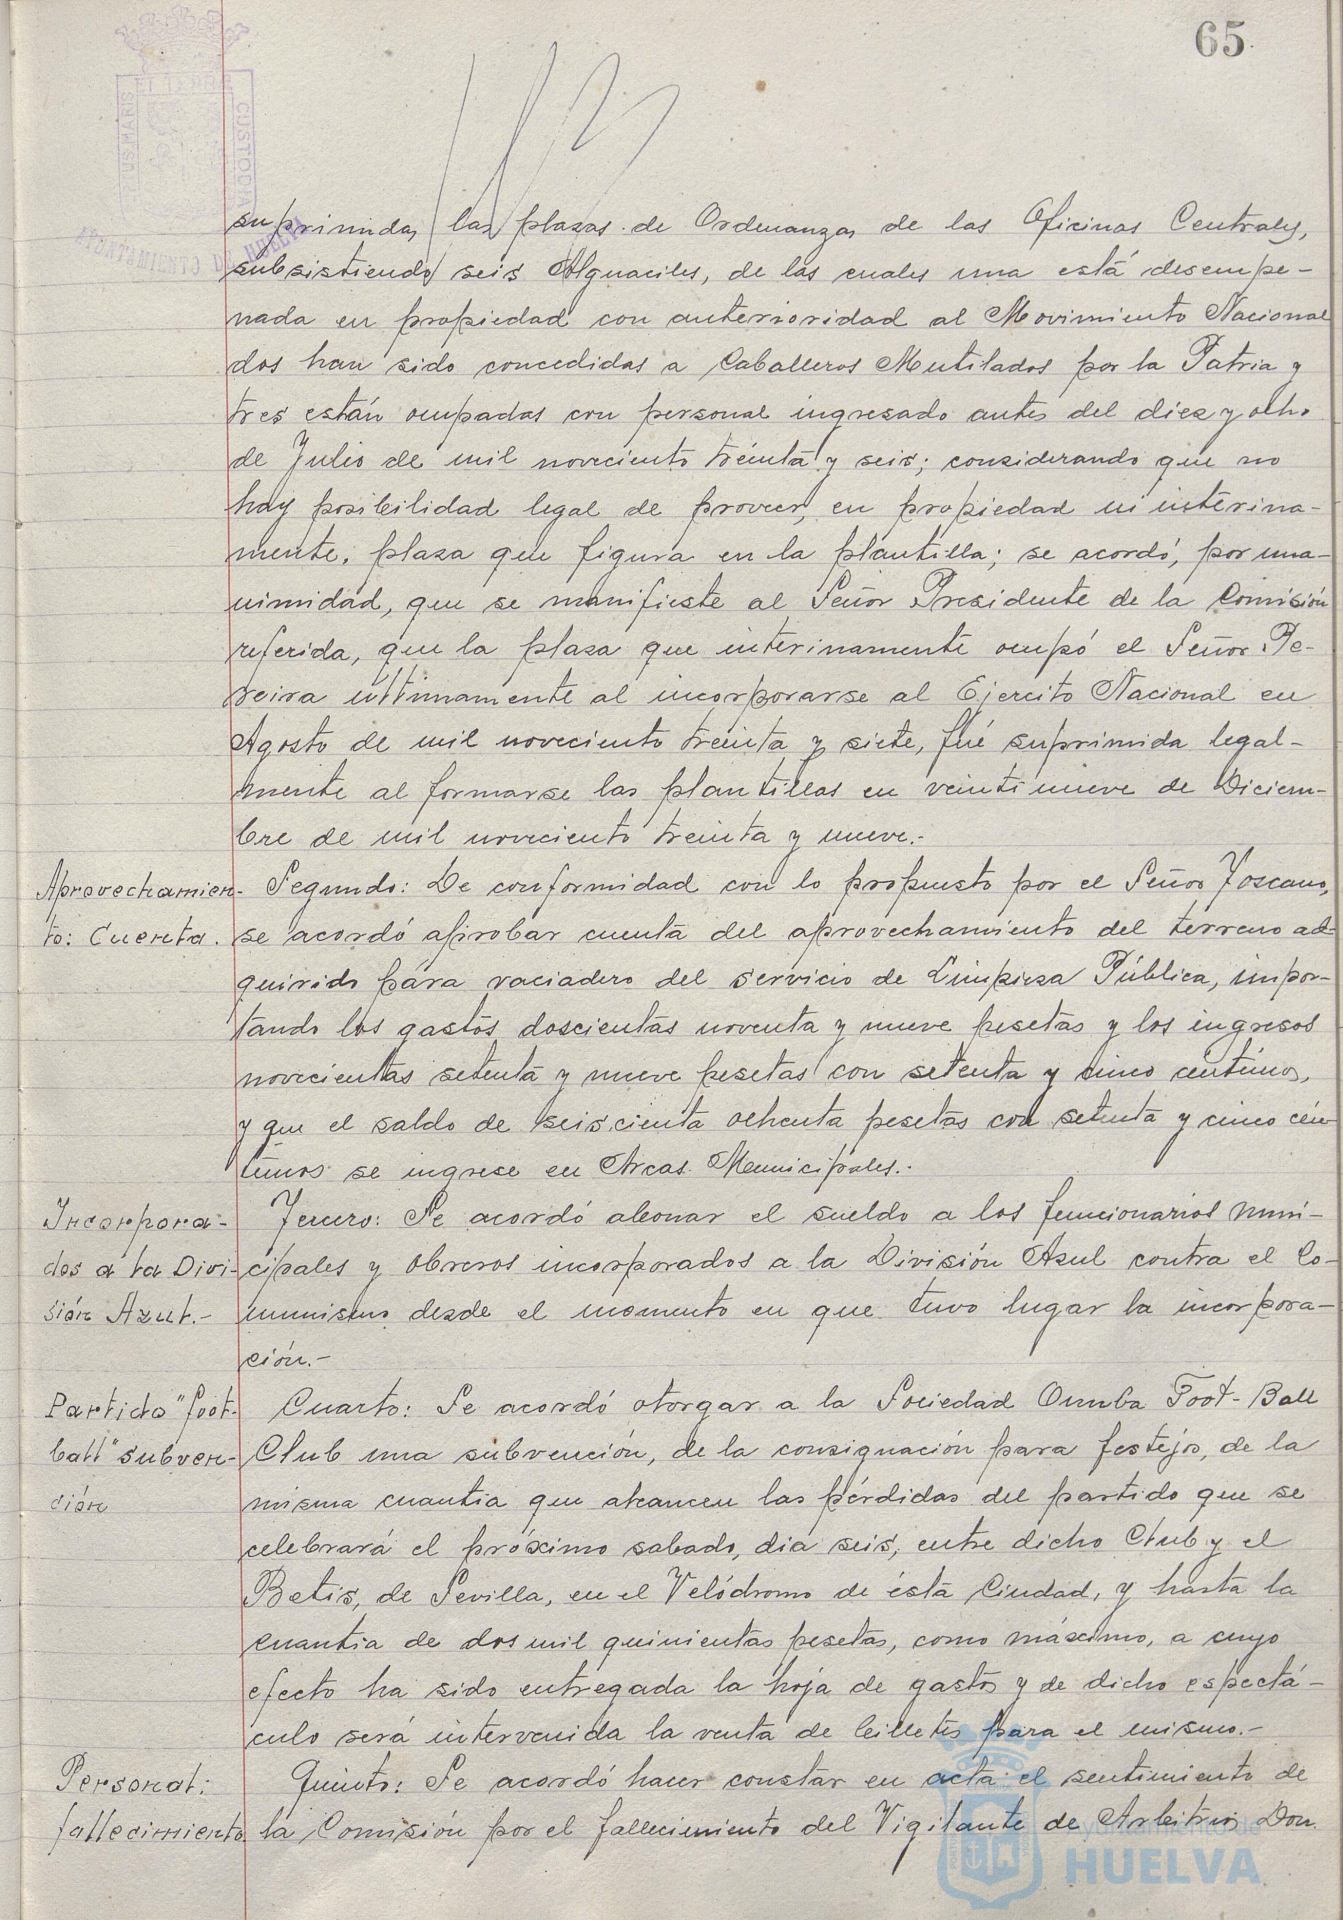 65
suprimidas las plazas de Ordenanzas de las Oficinas Centrales,
subsistiendo seis Alguaciles, de las cuales una está desempe-
nada en propiedad con anterioridad al Movimiento Nacional
dos han sido concedidas a Caballeros Mutilados por la Patria y
tres están ocupadas con personal ingresado antes del diez y ocho
de Julio de mil novecientos treinta y seis; considerando que no
hay posibilidad legal de proveer, en propiedad ni interina-
mente, plaza que figura en la plantilla; se acordó, por una-
nimidad, que se manifieste al Señor Presidente de la Comisión
referida, que la plaza que interinamente ocupó el Señor Pe-
reira últimamente al incorporarse al Ejercito Nacional en
Agosto de mil novecientos treinta y siete, fué suprimida legal-
mente al formarse las plantillas en veintinueve de Diciem-
bre de mil novecientos treinta y nueve.-
Aprovechamien-
to: Cuenta.
Segundo: De conformidad con lo propuesto por el Señor Toscano,
se acordó aprobar cuenta del aprovechamiento del terreno ad-
quirido para vaciadero del servicio de Limpieza Pública, impor-
tando los gastos doscientas noventa y nueve pesetas y los ingresos
novecientas setenta y nueve pesetas con setenta y cinco céntimos,
y que el saldo de seiscienta ochenta pesetas con setenta y cinco cén-
timos se ingrese en Arcas Municipales.-
Incorpora-
dos a la Divi-
sión Azul.-
Tercero: Se acordó abonar el sueldo a los funcionarios muni-
cipales y obreros incorporados a la División Azul contra el Co-
munismo desde el momento en que tuvo lugar la incorpora-
ción.-
Partido "foot-
ball" subven-
ción
Cuarto: Se acordó otorgar a la Sociedad Onuba Foot-Ball
Club una subvención, de la consignación para festejos, de la
misma cuantia que alcancen las pérdidas del partido que se
celebrará el próximo sabado, dia seis, entre dicho Club y el
Betis, de Sevilla, en el Velódromo de ésta Ciudad, y hasta la
cuantia de dos mil quinientas pesetas, como máximo, a cuyo
efecto ha sido entregada la hoja de gastos y de dicho espectá-
culo será intervenida la venta de billetes para el mismo.-
Personal:
fallecimiento
Quinto: Se acordó hacer constar en acta el sentimiento de
la Comisión por el fallecimiento del Vigilante de Arbitrios Don
CUSTODIA
AYUNTAMIENTO DE HUELVA
Ayuntamiento de
HUELVA